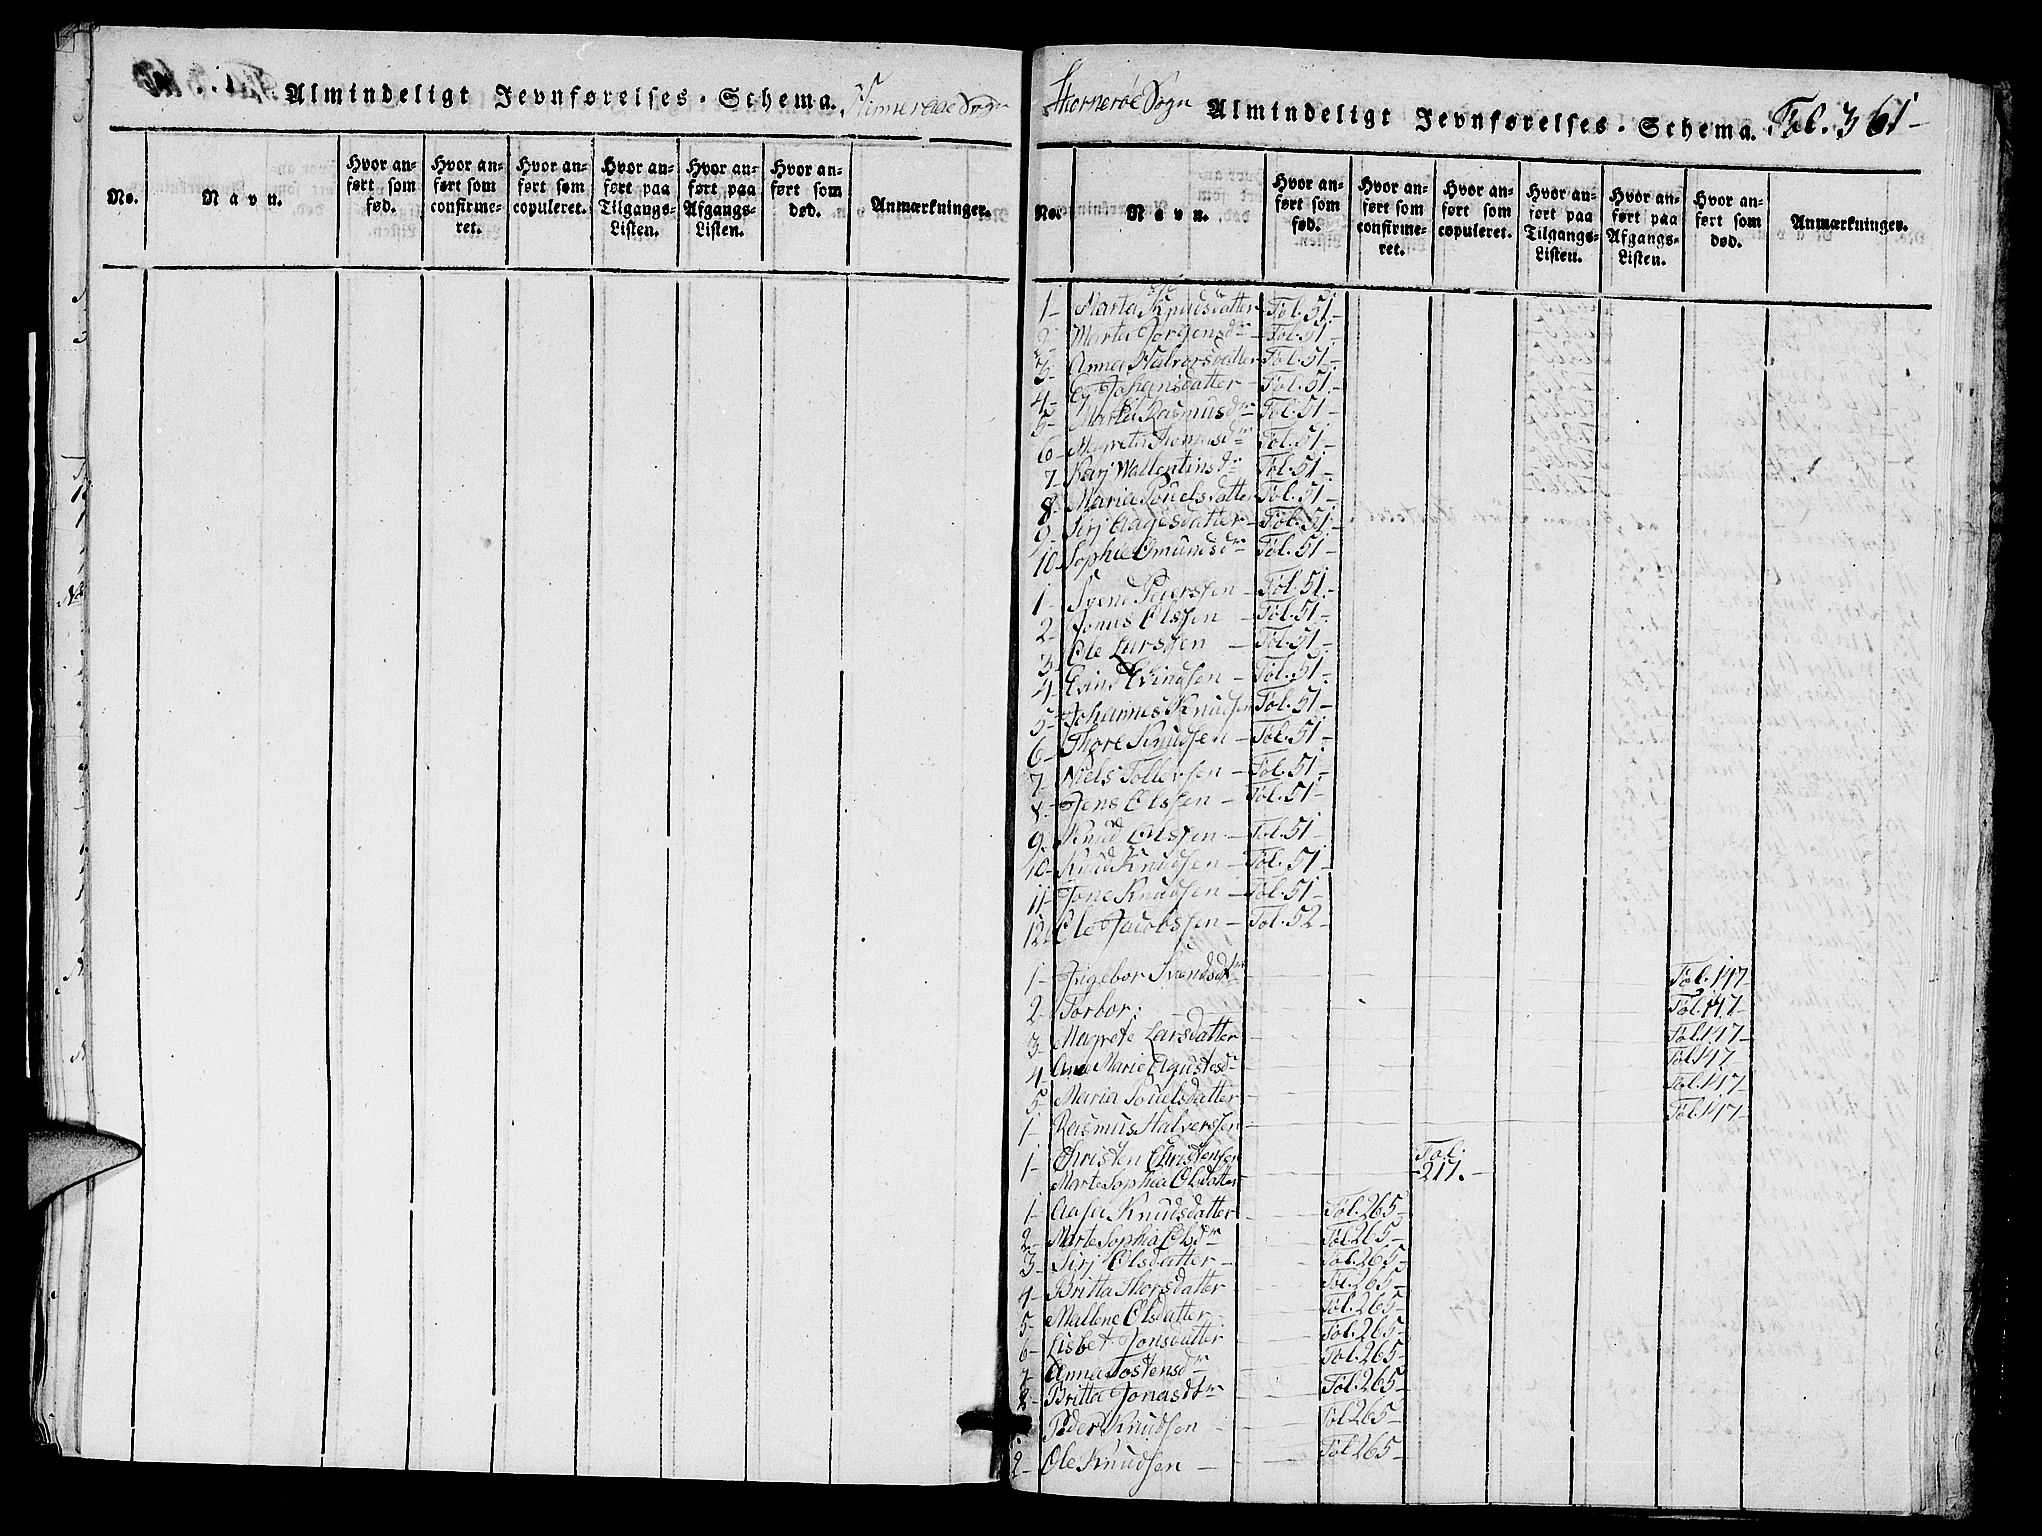 Almindeligt Jevnførelses-Schema.
No.
Navn.
Hvor anført som fød.
Hvor anført som confirmeret.
Hvor anført som copuleret.
Hvor anført paa Tilgangs-Listen.
Hvor anført paa Afgangs-Listen.
Hvor anført som død.
Anmærkninger.
Sogn Almindeligt Jevnførelses-Schema. Fol. 361-
No.
Navn.
Hvor anført som fød.
Hvor anført som confirmeret.
Hvor anført som copuleret.
Hvor anført paa Tilgangs-Listen.
Hvor anført paa Afgangs-Listen.
Hvor anført som død.
Anmærkninger.
1- Marta Knudsdatter Fol. 51-
2- Marta Jørgensdr Fol. 51-
3- Anna Halvorsdatter Fol. 51-
4- Johansdatter Fol. 51-
5- Marta Rasmusdr Fol. 51-
6- Magreta Thomasdr Fol. 51-
7- Karj Wallentinsdr Fol. 51-
8- Maria Poulsdatter Fol. 51-
9- Sirj Aagesdatter Fol. 51-
10- Sophie Omundsdr Fol. 51-
1- Svend Pedersen Fol. 51-
2- Jonas Olssen Fol. 51-
3- Ole Larssen Fol. 51-
4- Evind Evindsen Fol. 51-
5- Johannes Knudsen Fol. 51-
6- Thore Knudsen Fol. 51-
7- Niels Tollersen Fol. 51-
8- Jens Olssen Fol. 51-
9- Knud Olssen Fol. 51-
10- Knud Knudsen Fol. 51-
11- Jone Knudsen Fol. 51-
12- Ole Jacobssen Fol. 52-
1- Ingebor Svendsdtr Fol. 147-
2- Torbor: Fol. 147-
3- Magrete Larsdatter Fol. 147-
4- Ane Marie Fol. 147-
5- Maria Pouelsdatter Fol. 147-
1- Rasmus Halversen Fol. 147-
1- Christen Christensen Fol.
Marte Sophia Olsdatter 217.
1- Aasa Knudsdatter Fol. 265-
2- Marte Sophia Olsdr Fol. 265-
3- Sirj Olsdatter Fol. 265-
4- Britta Thorsdatter Fol. 265-
5- Mallene Olsdatter Fol. 265-
6- Lisbet Jonsdatter Fol. 265-
7- Anna Tostensdr Fol. 265-
8- Britta Jonasdtr Fol. 265-
Peder Knudsen Fol. 265-
2- Ole Knudsen Fol. 265-